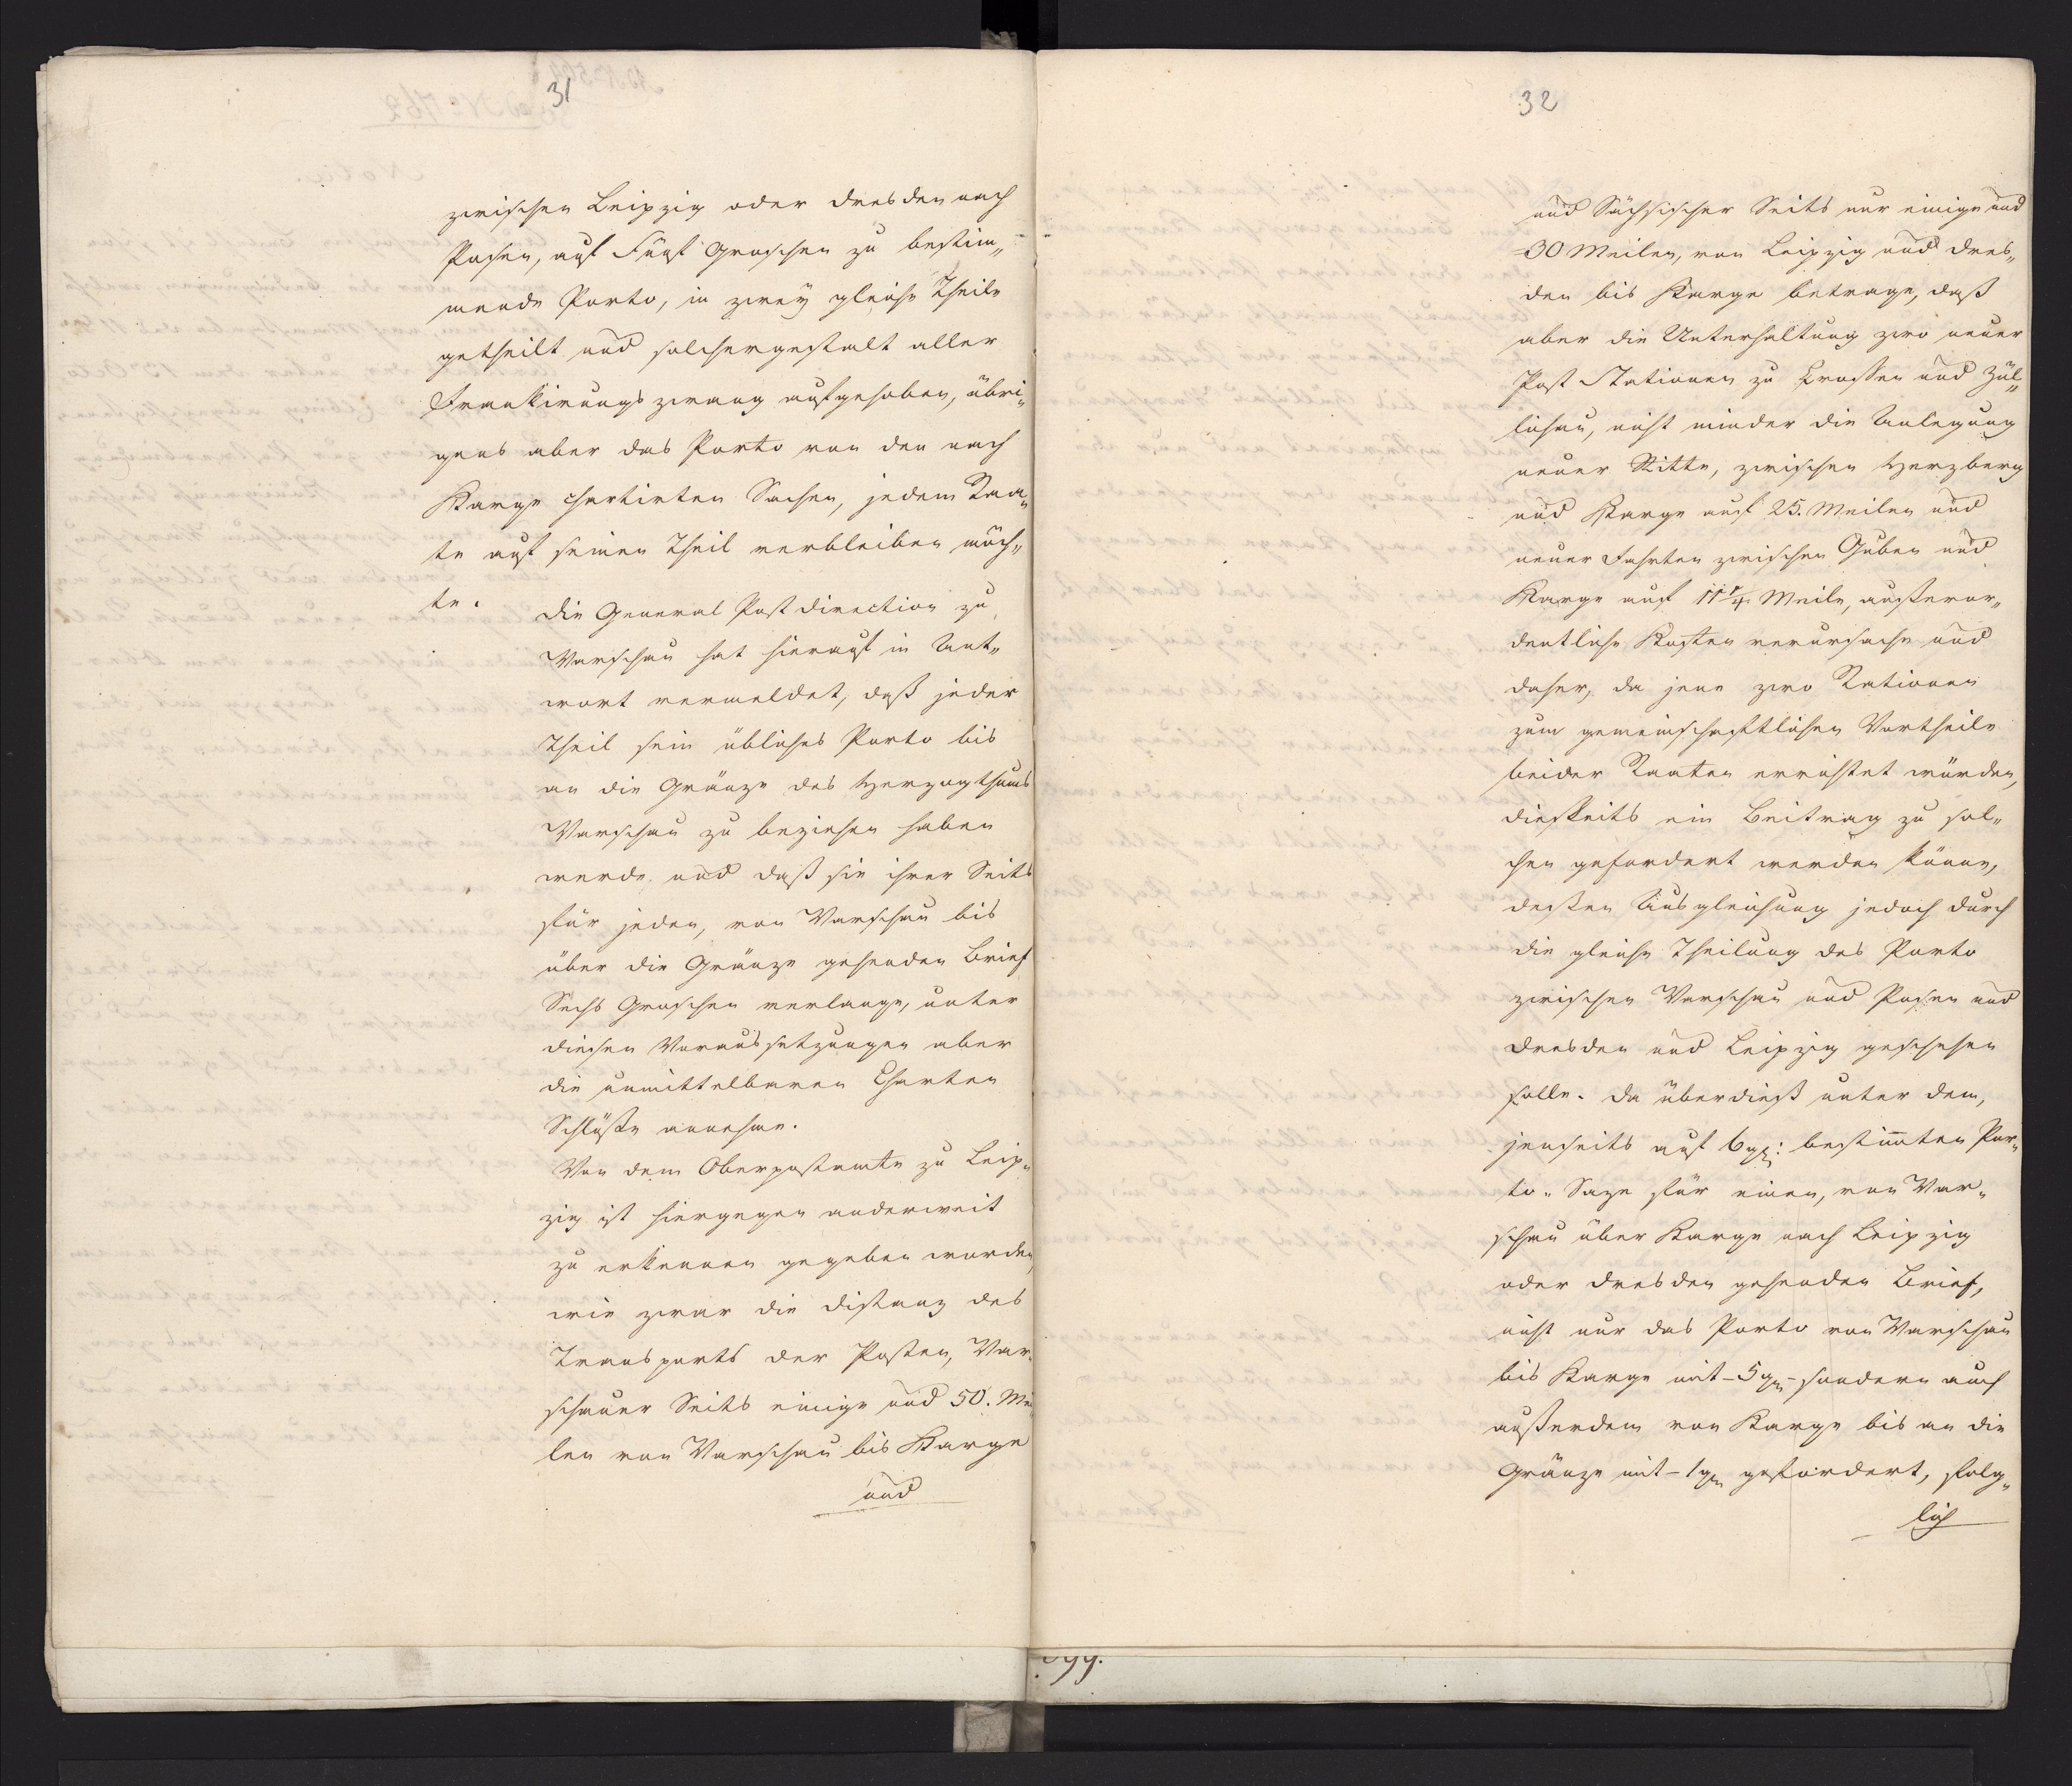 31
zwischen Leipzig oder Dresden nach
Posen, auf Fünf Groschen zu bestim„
mende Porto, in zwey gleiche Theile
getheilt und solchergestalt aller
Frankirungszwang aufgehoben, übri„
gens aber das Porto von den nach
Karge chartirten Sachen, jedem Staa„
te auf seinen Theil verbleiben möch„
te.
Die General Postdirection zu
Warschau hat hierauf in Ant„
wort vermeldet, daß jeder
Theil sein übliches Porto bis
an die Gränze des Herzogthums
Warschau zu beziehen haben
werde und daß sie ihrer Seits
für jeden, von Warschau bis
über die Gränze gehenden Brief
Sechs Groschen verlange, unter
diesen Voraussetzungen aber
die unmittelbaren Charten
Schlüße annehme.
Von dem Oberpostamte zu Leip„
zig ist hiergegen anderweit
zu erkennen gegeben worden,
wie zwar die Distanz des
Transports der Posten, War„
schauer Seits einige und 50. Mei
len von Warschau bis Karge
und
32
und Sächsischer Seits nur einige und
30 Meilen, von Leipzig und Dres„
den bis Karge betrage, daß
aber die Unterhaltung zwo neuer
Post Stationen zu Crossen und Zül„
lichau, nicht minder die Anlegung
neuer Ritte, zwischen Herzberg
und Karge auf 25. Meilen und
neuer Fahrten zwischen Guben und
Karge auf 11 1/4. Meile, außeror„
dentliche Kosten verursache und
daher, da jene zwo Stationen
zum gemeinschaftlichen Vortheile
beider Staaten errichtet würden,
diesseits ein Beitrag zu sol„
chen gefordert werden könne,
dessen Ausgleichung jedoch durch
die gleiche Theilung des Porto
zwischen Warschau und Posen und
Dresden und Leipzig geschehen
solle. Da überdieß unter dem,
jenseits auf 6 gr: bestimmten Por„
to-Saze für einen, von War„
schau über Karge nach Leipzig
oder Dresden gehenden Brief,
nicht nur das Porto von Warschau
bis Karge mit - 5 gr - sondern auch
außerdem von Karge bis an die
Gränze mit - 1 gr gefordert, folg„
lich